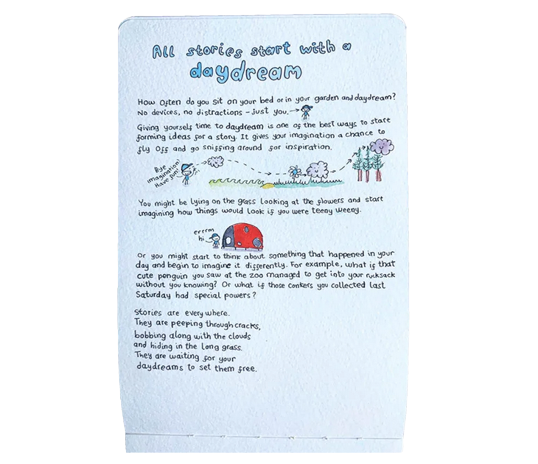 All stories start with a
daydream
How often do you sit on your bed or in your garden and daydream?
No devices, no distractions - just you.
Giving yourself time to daydream is one of the best ways to start
forming ideas for a story. It gives your imagination a chance to
fly off and go sniffing around for inspiration.
Bye
imagination!
Have fun!
You might be lying on the grass looking at the flowers and start
imagining how things would look if you were teeny weeny.
errrm
hi
Or you might start to think about something that happened in your
day and begin to imagine it differently. For example, what if that
cute penguin you saw at the zoo managed to get into your rucksack
without you knowing? Or what if those conkers you collected last
Saturday had special powers?
Stories are everywhere.
They are peeping through cracks,
bobbing along with the clouds
and hiding in the long grass.
They are waiting for your
daydreams to set them free.